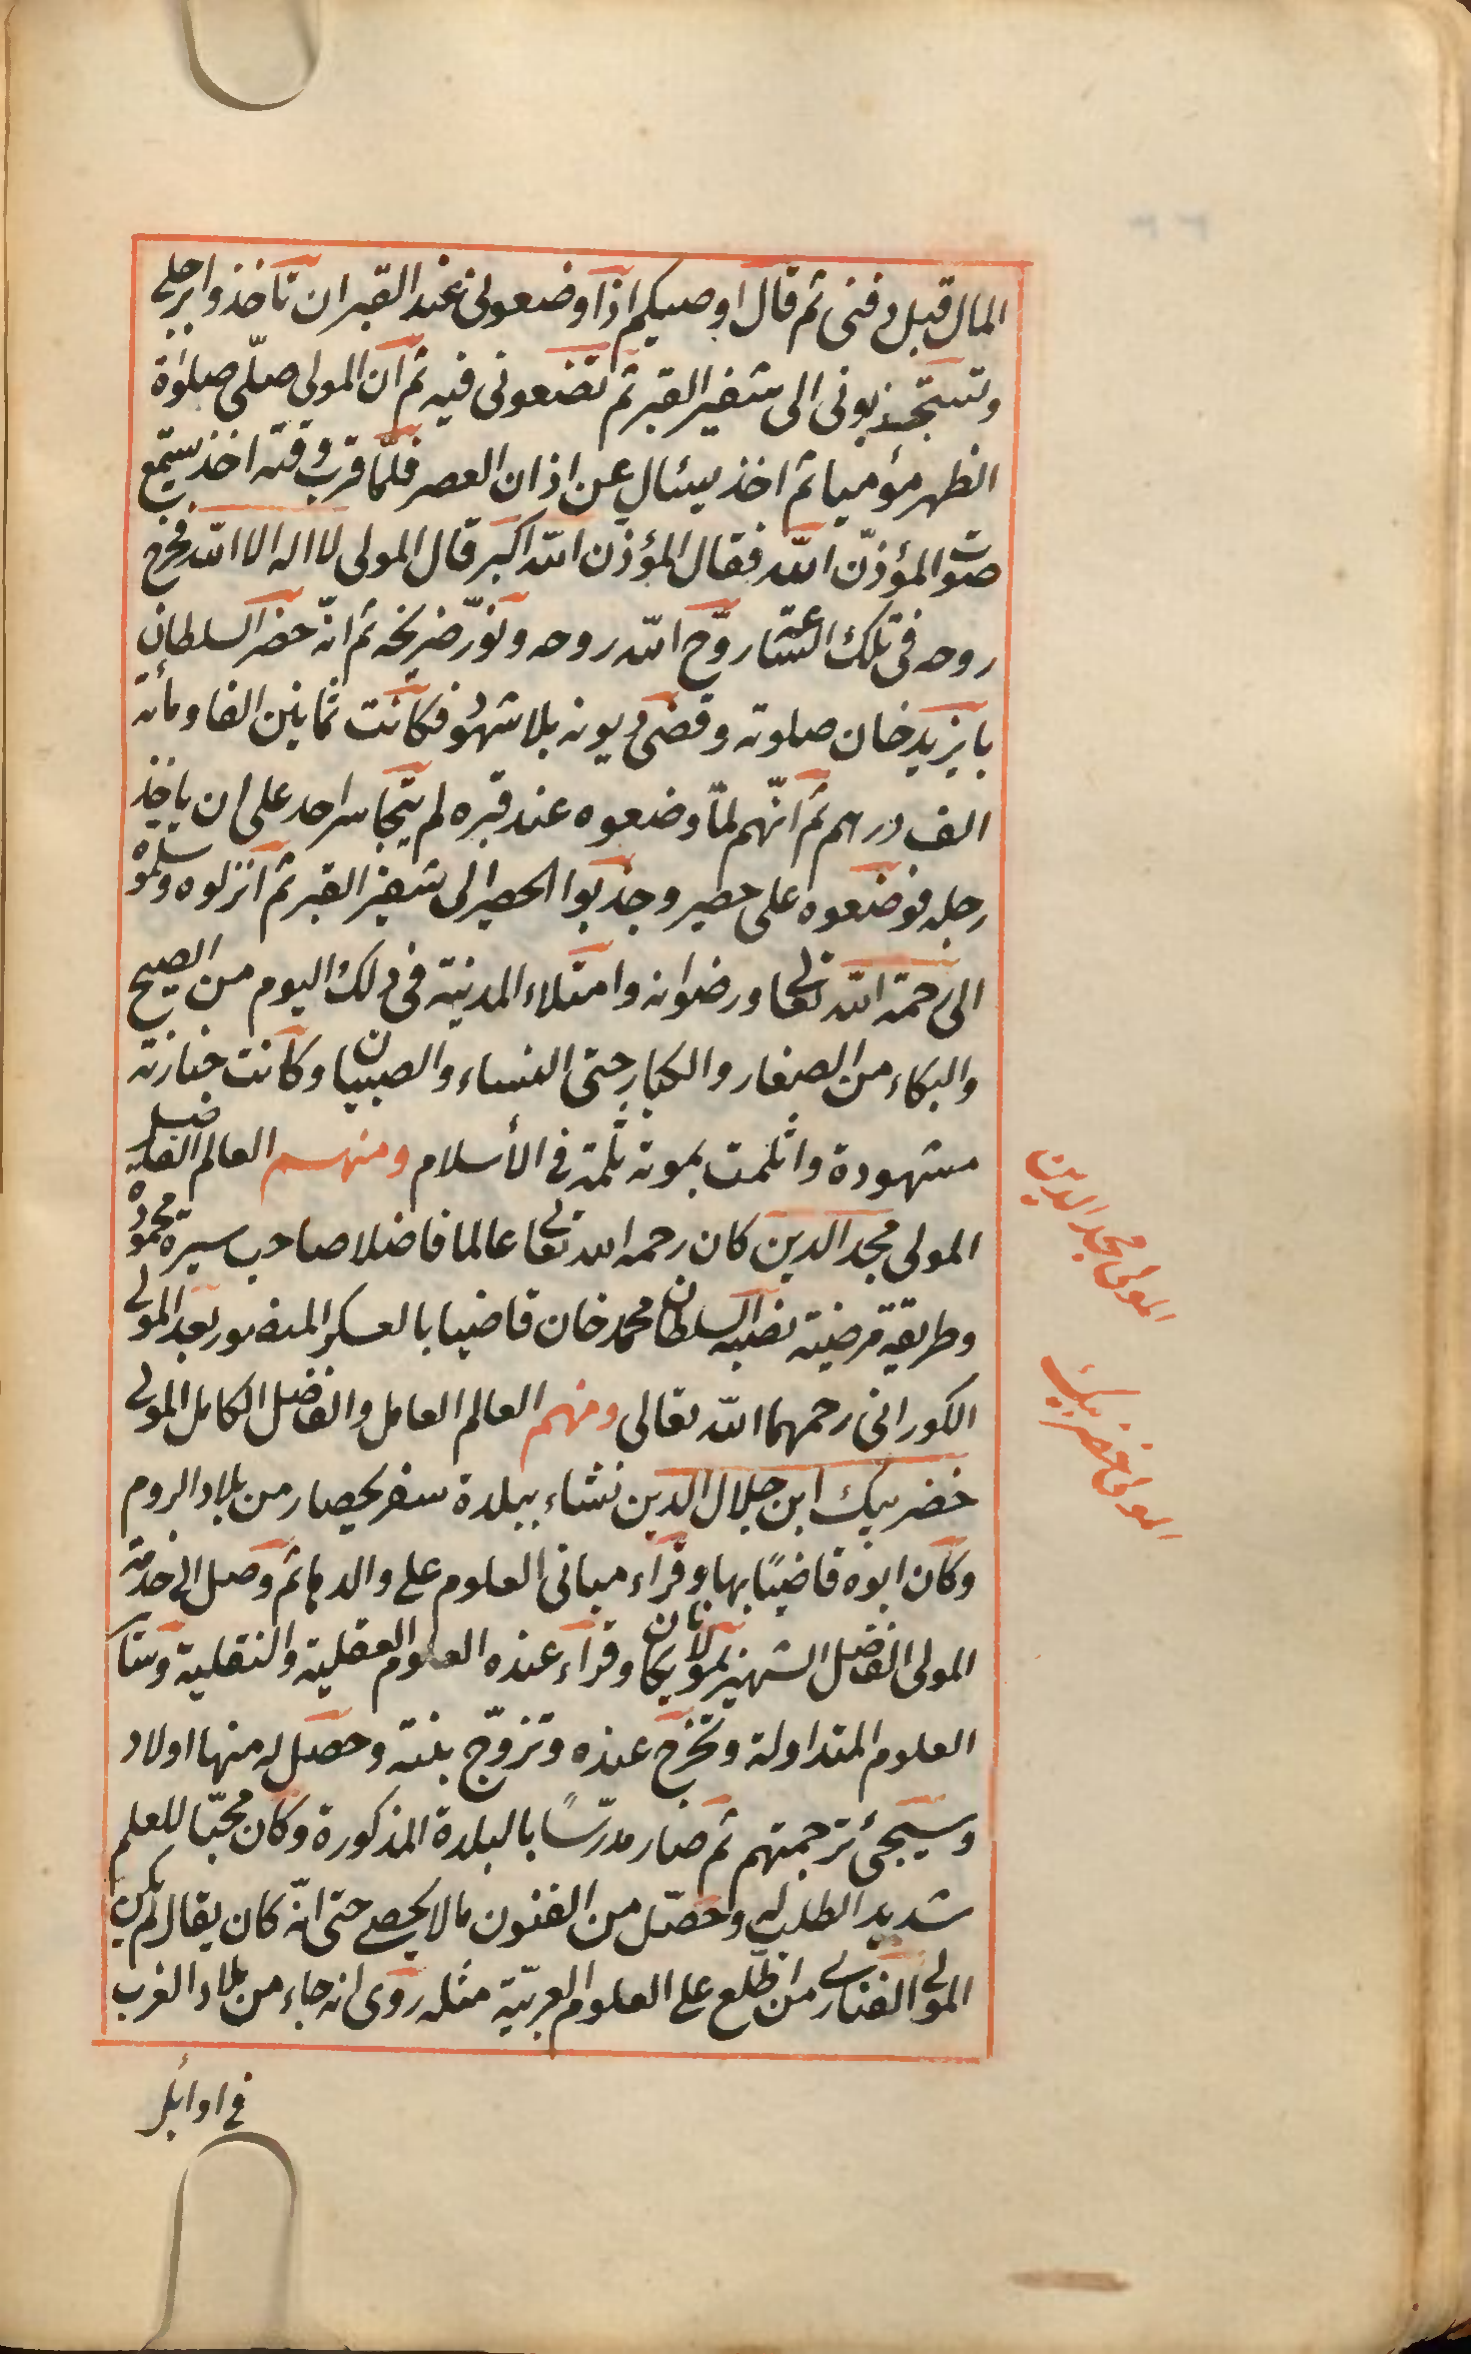 المال قبل دفنى ثم قال اوصيكم اذا وضعونى عند القبر ان تأخذوا برجلى
وتستجذبونى الى شفير القبر ثم تضعونى فيه ثم ان المولى صلّى صلوة
الظهر مؤميا ثم اخذ يسئال عن اذان العصر فلمّا قرب وقته اخذ يستمع
صوت المؤذّن الله فقال المؤذن الله اكبر قال المولى لا اله الا الله فخرج
روحه فى تلك الساعة روّح الله روحه ونوّر ضريحه ثم انّه حضر السلطان
بايزيد خان صلوته وقضى ديونه بلا شهود فكانت ثمانين الفا ومأئة
الف درهم ثم انّهم لمّا وضعوه عند قبره لم يتجاسر احد على ان ياخذ
رجله فوضعوه على حصير وجذبوا الحصير الى شفير القبر ثم انزلوه وسلموه
الى رحمة الله تعالى ورضوانه وامتلاء المدينة فى ذلك اليوم من الصيح
والبكاء من الصغار والكبار حتى النساء والصبيان وكانت جنازته
مشهودة وانثلمت بموته ثلمة فى الأسلام ومنهم العالم الفاضل
المولى مجد الدين كان رحمه الله تعالى عالما فاضلا صاحب سيرة محمودة
وطريقة مرضية نصبه السلطان محمد خان قاضيا بالعسكر المنصور بعد المولى
الكورانى رحمهما الله تعالى ومنهم العالم العامل والفاضل الكامل المولى
خضر بيك ابن جلال الدين نشاء ببلدة سفريحصار من بلاد الروم
وكان ابوه قاضيًا بها وقراء مبانى العلوم على والده ثم وصل الى خدمة
المولى الفاضل الشهير بمولانا يكان وقراء عنده العلوم العقلية والنقلية وسائر
العلوم المتداولة وتخرج عنده وتزوّج بنته وحصل له منها اولاد
وسيجئ ترجمتهم ثم صار مدرّسًا بالبلدة المذكورة وكان محبّا للعلم
شديد الطلب له وحصّل من الفنون ما لا يحصى حتى انّه كان يقال لم يكن بعد
المولى الفنارى من اطّلع على العلوم العربيّة مثله روى انه جاء من بلاد العرب
فى اوائل
المولى مجد الدين
المولى خضر بيك